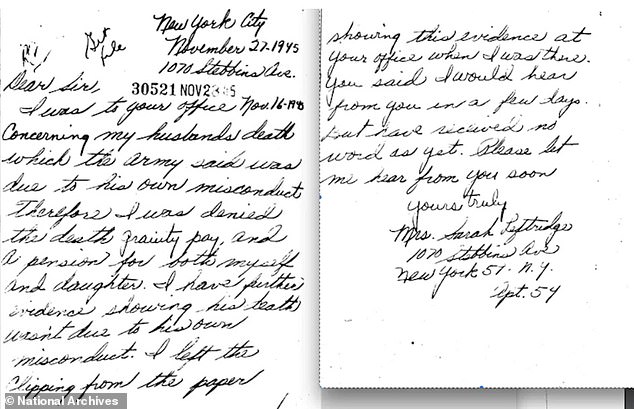 New York City
November 27-1945
1070 Stebbins Ave.
Dear Sir,
30521 NOV28 45
I was to your office Nov. 16-1945
Concerning my husbands death
which the Army said was
due to his own misconduct
therefore I was denied
the death graiuty pay, and
a pension for both myself
and daughter. I have further
evidence showing his death
wasn't due to his own
misconduct. I left the
Clipping from the paper
showing this evidence at
your office when I was there.
You said I would hear
from you in a few days.
But have recieved no
word as yet. Please let
me hear from you soon
yours truly
Mrs. Sarah Leftridge
1070 Stebbins Ave
New York 51. N.Y.
Apt. 54
© National Archives